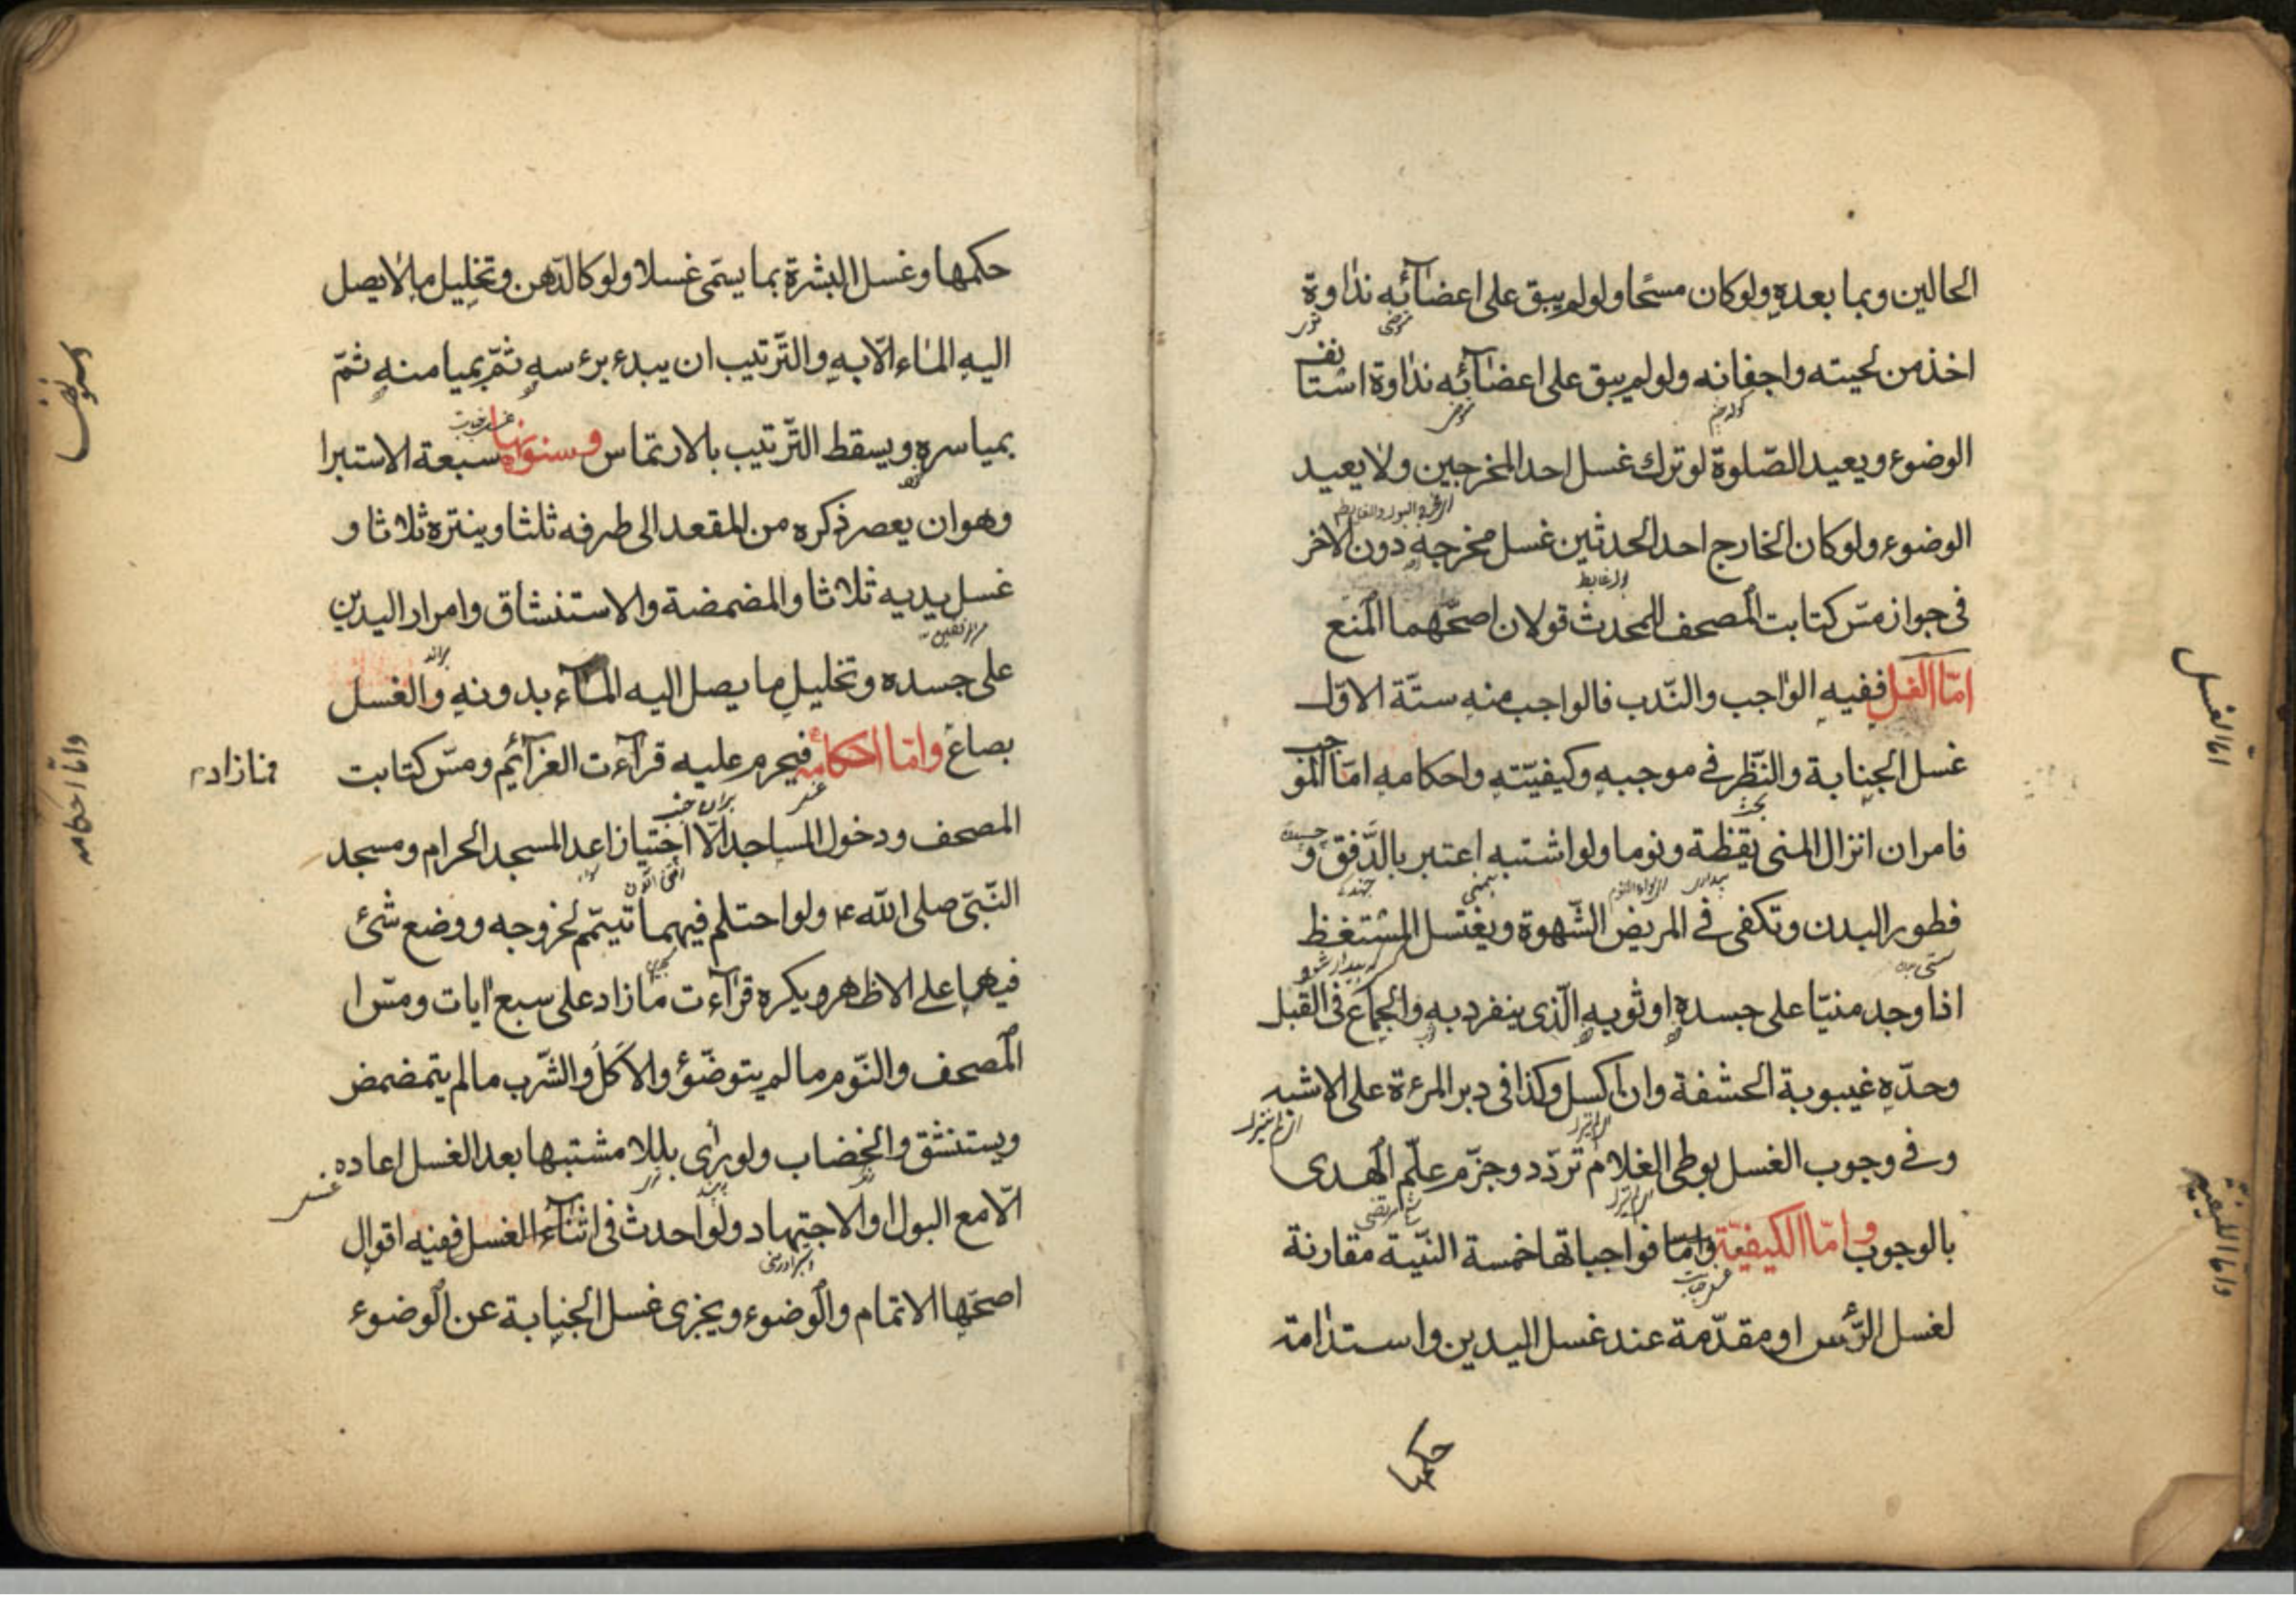 الحالين وبما بعده ولو كان مسحا ولو لم يبق على اعضآئه نداوة
اخذ من لحيته واجفانه ولو لم يبق على اعضآئه نداوة استانف
الوضوء ويعيد الصّلوة لو ترك غسل احد المخرجين ولا يعيد
الوضوء ولو كان الخارج احد الحدثين غسل مخرجه دون الاخر
فى جواز مسّ كتابت المصحف للمحدث قولان اصحّهما المنع
امّا الغسل ففيه الواجب والنّدب فالواجب منه ستّة الاوّل
غسل الجنابة والنّظر فى موجبه وكيفيّته واحكامه امّا الموجب
فامران انزال المنى يقظة ونوما ولو اشتبه اعتبر بالدّفق و
فطور البدن وتكفى فى المريض الشّهوة ويغتسل المستغظ
اذا وجد منيّا على جسده او ثوبه الّذى ينفرد به والجماع فى القبل
وحدّه غيبوبة الحشفة وان اكسل وكذا فى دبر المرءة على الاشبه
وفى وجوب الغسل بوطى الغلام تردّد وجزّم علّم الهدى
بالوجوب وامّا الكيفيّة وامّا فواجباتها خمسة النيّة مقارنة
لغسل الرّأس او مقدّمة عند غسل اليدين واستدامة
حكمها
امّا الغسل
وامّا الكيفيّة
حكمها وغسل البشرة بما يسمّى غسلا ولو كالدّهن وتخليل ما لا يصل
اليه المآء الّا به والتّرتيب ان يبدء برءسه ثمّ بميامنه ثمّ
بمياسره ويسقط التّرتيب بالارتماس وسنونها سبعة الاستبرا
وهو ان يعصر ذكره من المقعد الى طرفه ثلثا وينتره ثلاثا و
غسل يديه ثلاثا والمضمضة والاستنشاق وامرار اليدين
على جسده وتخليل ما يصل اليه المآء بدونه والغسل
بصاع وامّا احكامه فيحرم عليه قرآءت العزآئم ومسّ كتابت
المصحف ودخول المساجد الّا اجتيازا عدا المسجد الحرام ومسجد
النّبىّ صلى الله ع ولو احتلم فيهما تيمّم لخروجه ووضع شئ
فيها على الاظهر ويكره قرآءت ما زاد على سبع ايات ومسّ ا
المصحف والنّوم ما لم يتوضّؤ والاكل والشّرب ما لم يتمضمض
ويستنشق والخضاب ولو رأى بللا مشتبها بعد الغسل اعاده
الّا مع البول او الاجتهاد ولو احدث فى اثنآء الغسل ففيه اقوال
اصحّها الاتمام والوضوء ويجزى غسل الجنابة عن الوضوء
وامّا احكامه